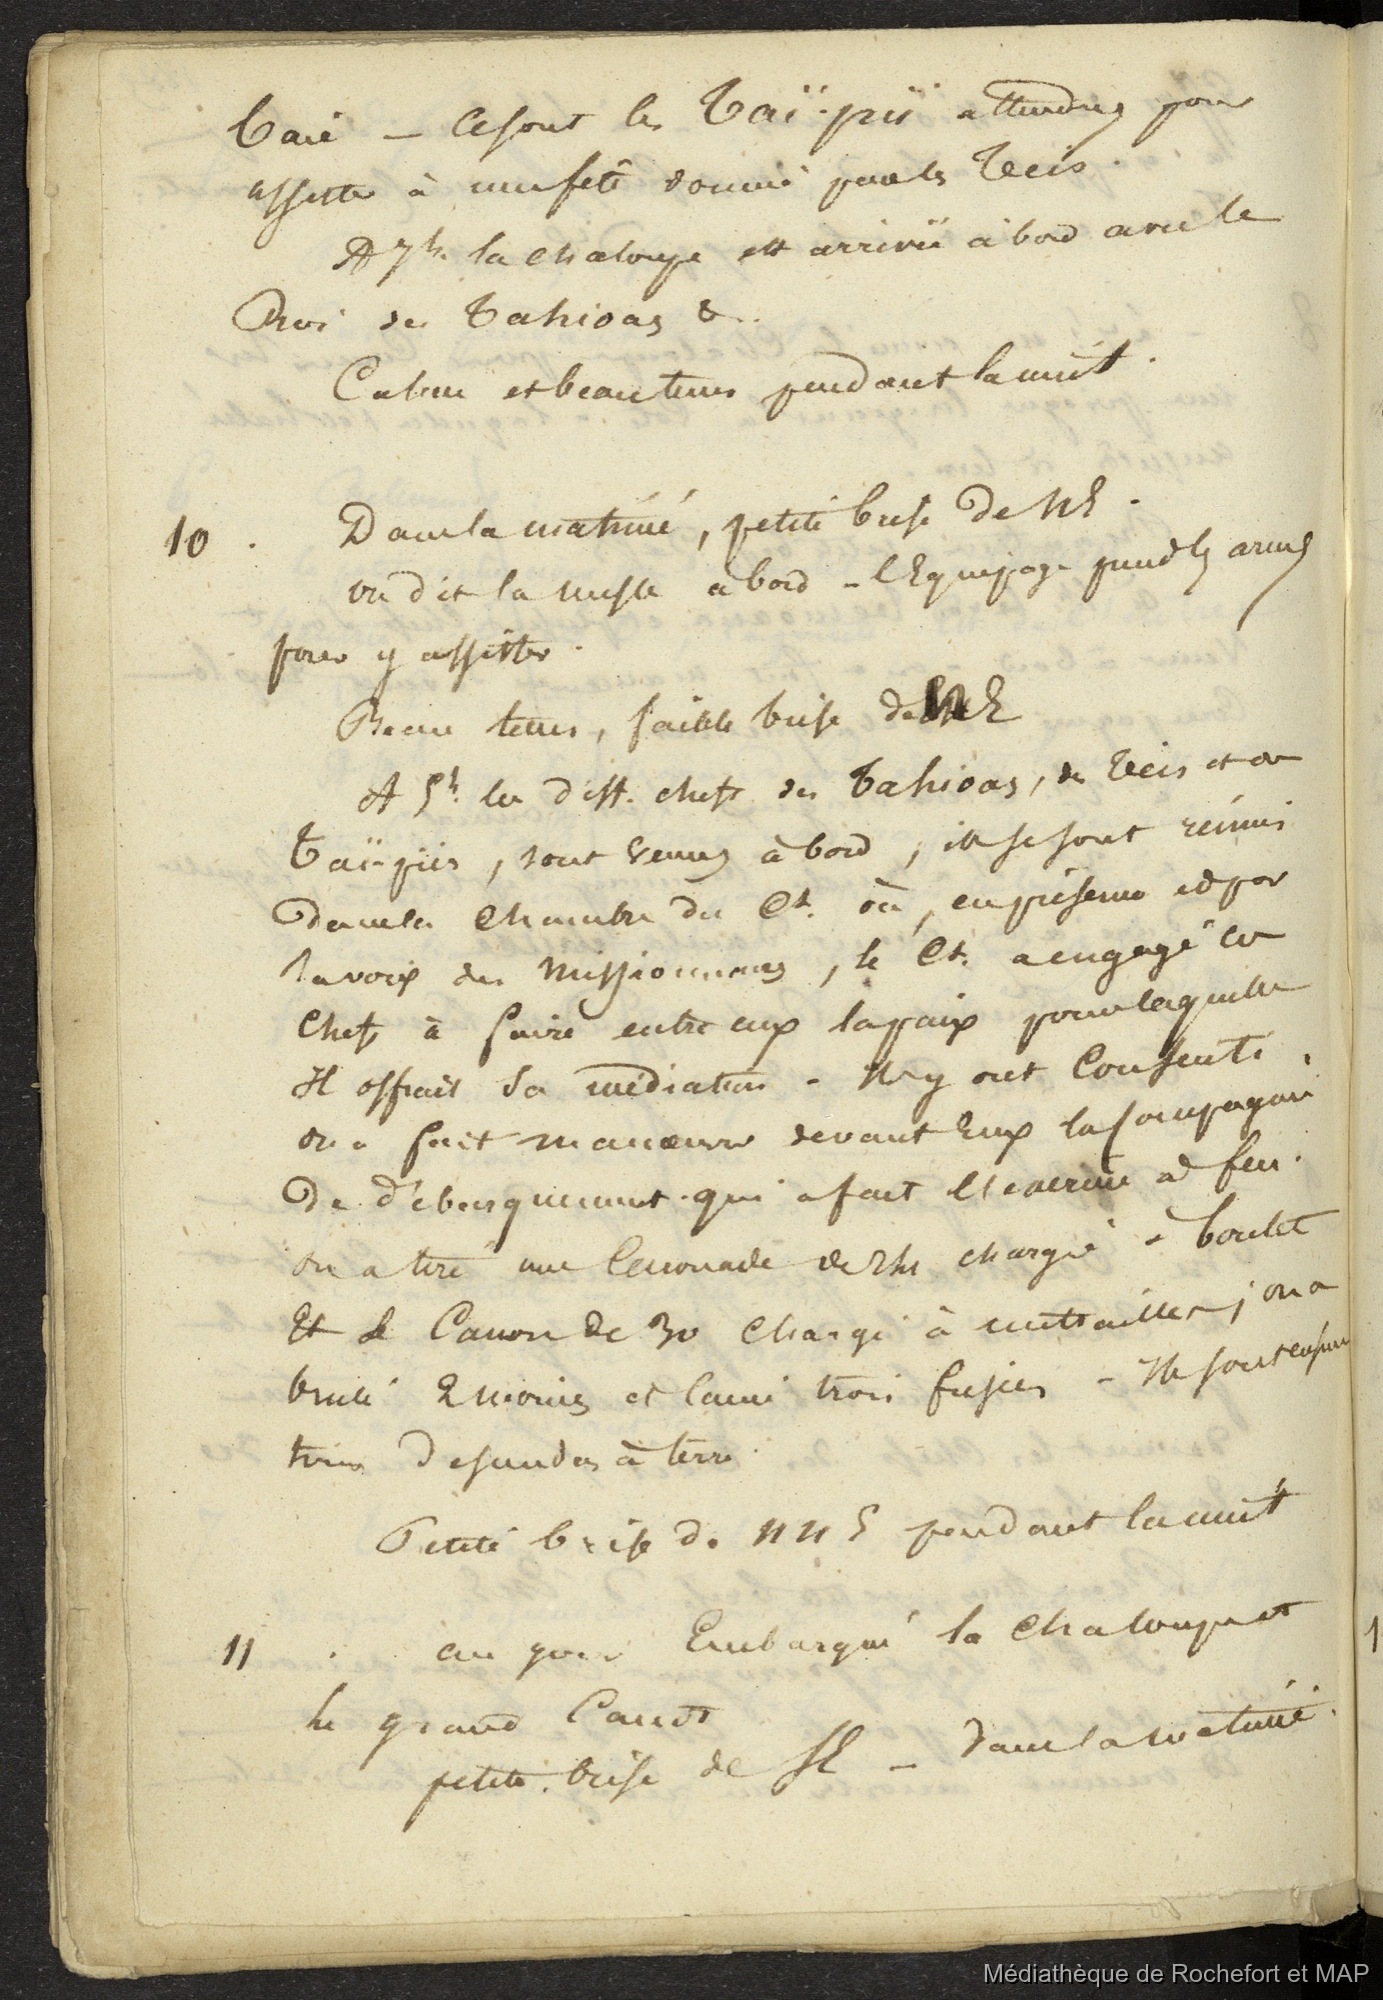 baie – Ce sont les Taï-piï attendus pour
assister à une fête donnée par les Teiis.
A 7h. la chaloupe est arrivée à bord avec le
Roi des Tahioas &..
Calme et beau tems pendant la nuit.
10 . Dans la matinée, petite brise de NE.
on dit la messe à bord – l'Equipage prend les armes
pour y assister.
Beau tems, faible brise de NE
A 5h. les diff. chefs des Tahioas, des Teiis et des
Taï-piis, sont venus à bord, ils se sont réunis
dans la chambre du Ct. où, en présence et par
la voix des Missionnaires, le Ct. a engagé ces
Chefs à faire entre eux la paix pour laquelle
Il offrait sa médiation – Ils y ont Consenti.
on a fait manœuvrer devant Eux la Compagnie
De débarquement qui a fait l'exercice à feu.
on a tiré une Caronade chargée à boulet
Et le Canon de 30 Chargé à mitrailles ; on a
brulé et lancé trois fusées – Ils sont ensuite
tous descendus à terre.
Petite brise de NNE pendant la nuit
11 . au jour Embarqué la chaloupe et
le grand Canot
petite brise de SE – dans la matinée.
Médiathèque de Rochefort et MAP